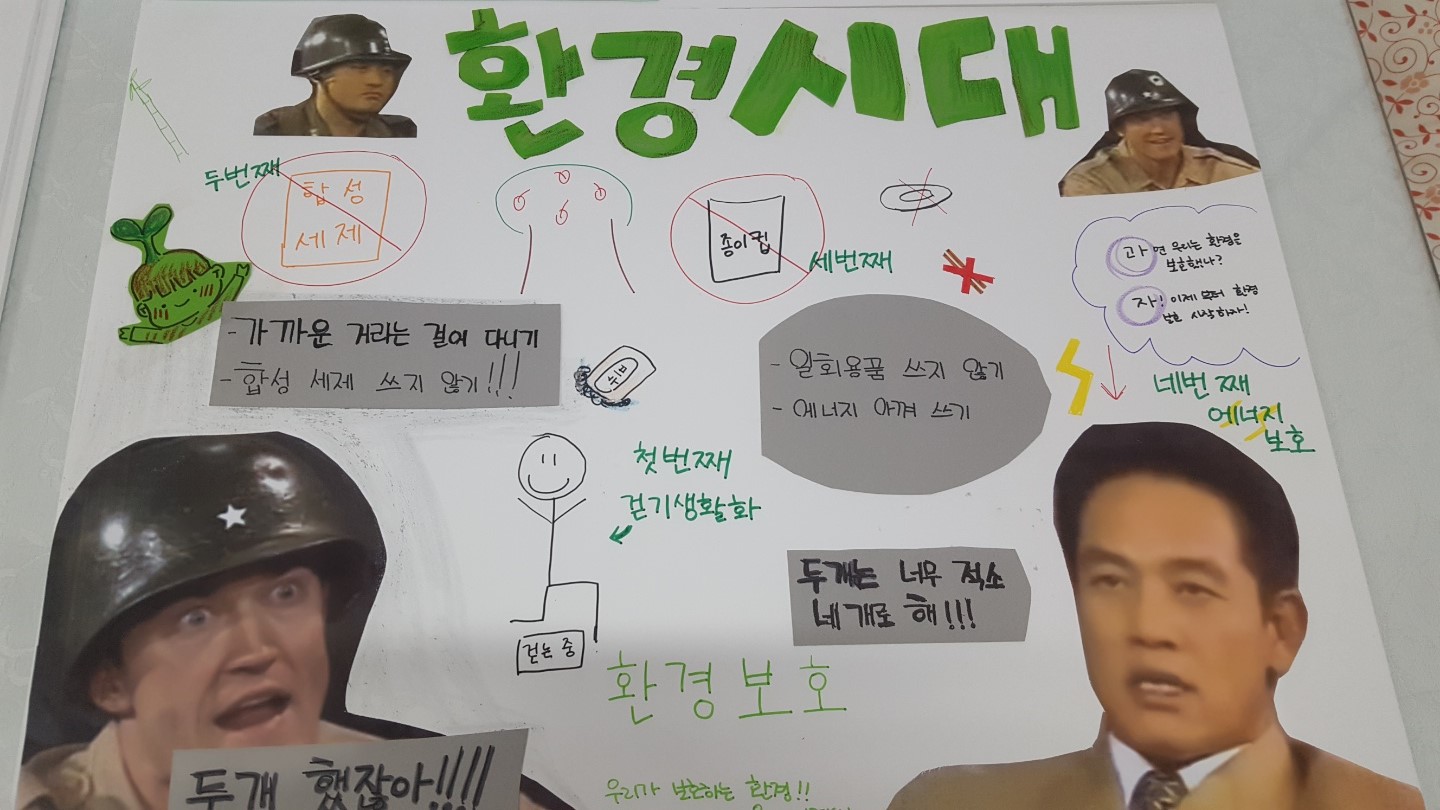 환경시대
두번째
합성
세제
종이컵
세번째
과연 우리는 환경은
보호했나?
자! 이제부터 환경
보호 시작하자!
- 가까운 거리는 걸어 다니기
- 합성 세제 쓰지 않기!!!
- 일회용품 쓰지 않기
- 에너지 아껴 쓰기
네번째
에너지
보호
첫번째
걷기생활화
두개는 너무 적소
네개로 해!!!
걷는 중
환경보호
두개 했잖아!!!!
우리가 보호하는 환경!!